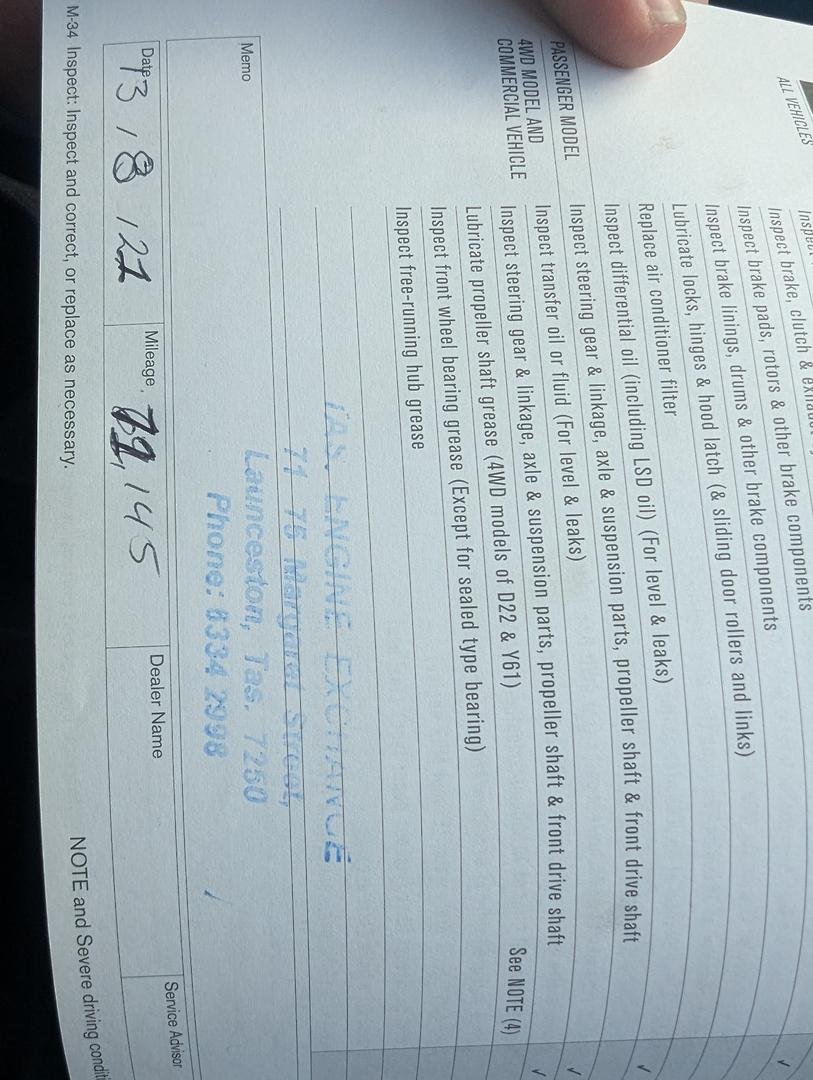 ALL VEHICLES
Inspect
Inspect brake, clutch &
Inspect brake pads, rotors & other brake components
Inspect brake linings, drums & other brake components
Lubricate locks, hinges & hood latch (& sliding door rollers and links)
Replace air conditioner filter
Inspect differential oil (including LSD oil) (For level & leaks)
PASSENGER MODEL Inspect steering gear & linkage, axle & suspension parts, propeller shaft & front drive shaft
4WD MODEL AND COMMERCIAL VEHICLE Inspect transfer oil or fluid (For level & leaks)
Inspect steering gear & linkage, axle & suspension parts, propeller shaft & front drive shaft
Lubricate propeller shaft grease (4WD models of D22 & Y61) See NOTE (4)
Inspect front wheel bearing grease (Except for sealed type bearing)
Inspect free-running hub grease
TAS. ENGINE EXCHANGE
71 75 Margaret Street,
Launceston, Tas. 7250
Phone: 6334 2998
Memo
Date 13/8/21 Mileage 145 Dealer Name Service Advisor
M-34 Inspect: Inspect and correct, or replace as necessary. NOTE and Severe driving